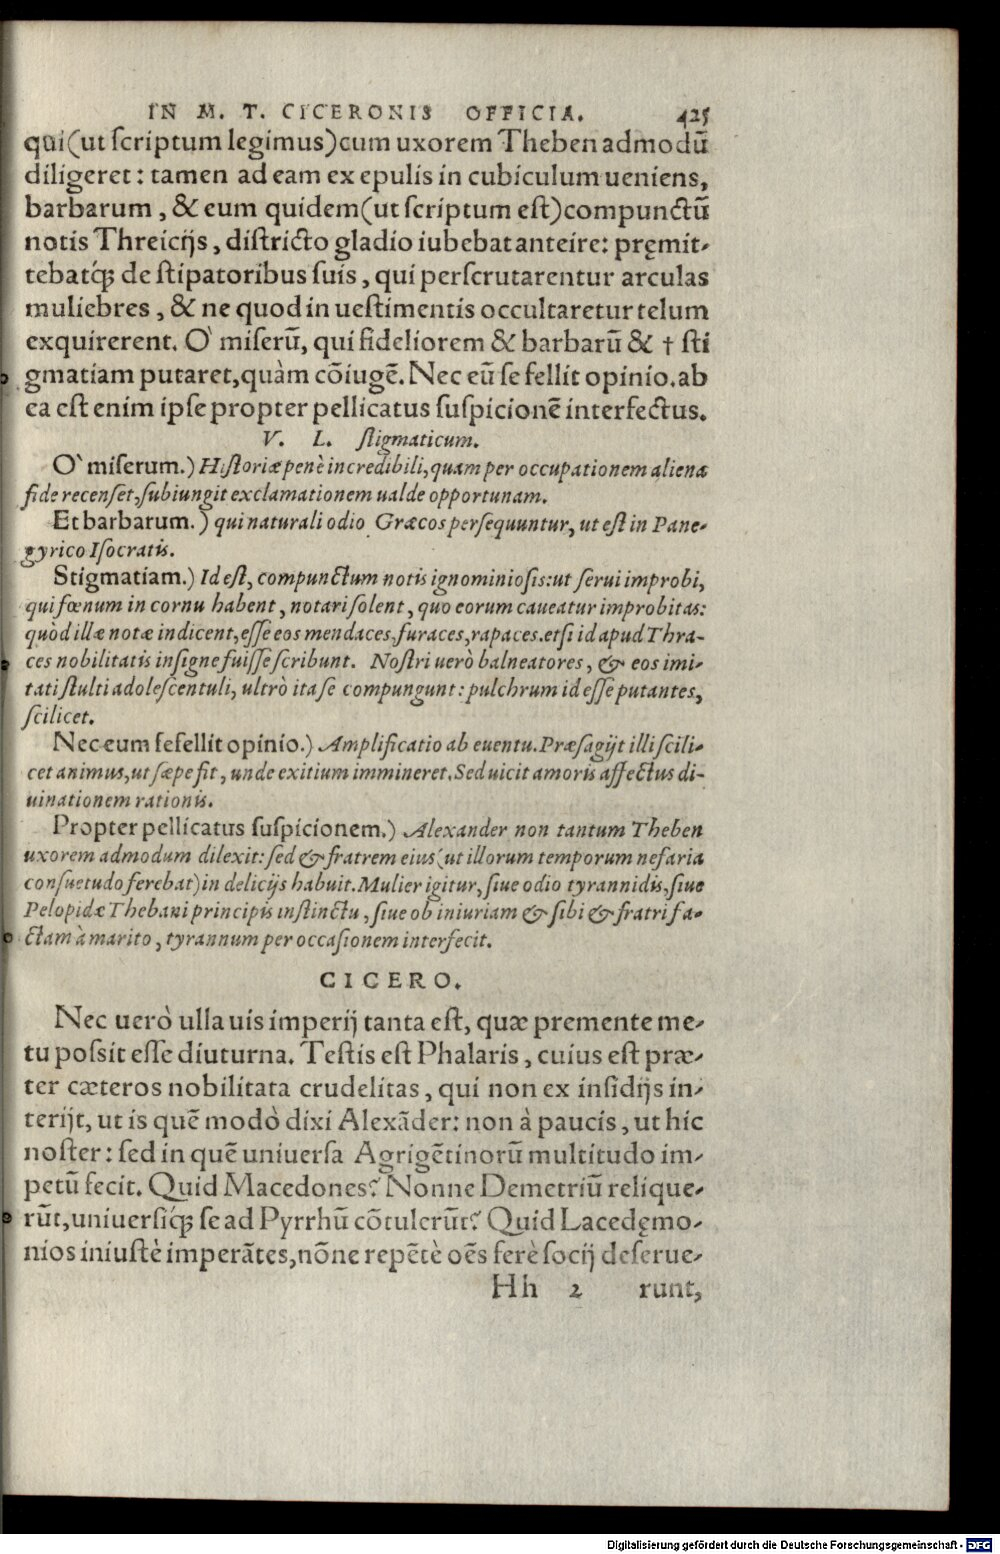 IN M. T. CICERONIS OFFICIA. 425
qui(ut ſcriptum legimus)cum uxorem Theben admodū
diligeret: tamen ad eam ex epulis in cubiculum ueniens,
barbarum, & eum quidem(ut ſcriptum eſt)compunctū
notis Threicijs, diſtricto gladio iubebat anteire: pręmit-
tebatq́ꝫ de ſtipatoribus ſuis, qui perſcrutarentur arculas
muliebres, & ne quod in ueſtimentis occultaretur telum
exquirerent. O` miſerū, qui fideliorem & barbarū & † ſti
gmatiam putaret, quàm cōiugē. Nec eū fefellit opinio. ab
ea eſt enim ipſe propter pellicatus ſuſpicionē interfectus.
V. L. ſtigmaticum.
O` miſerum.) Hiſtoriæ penè incredibili, quam per occupationem aliena
fide recenſet, ſubiungit exclamationem ualde opportunam.
Et barbarum.) qui naturali odio Græcos perſequuntur, ut eſt in Pane-
gyrico Iſocratis.
Stigmatiam.) Id eſt, compunctum notis ignominioſis: ut ſerui improbi,
qui fœnum in cornu habent, notari ſolent, quo eorum caueatur improbitas:
quòd illæ notæ indicent, eſſe eos mendaces, furaces, rapaces. etſi id apud Thra-
ces nobilitatis inſigne fuiſſe ſcribunt. Noſtri uerò balneatores, & eos imi-
tati ſtulti adoleſcentuli, ultrò ita ſe compungunt: pulchrum id eſſe putantes,
ſcilicet.
Nec eum fefellit opinio.) Amplificatio ab euentu. Præſagijt illi ſcili-
cet animus, ut ſæpe fit, unde exitium immineret. Sed uicit amoris affectus di-
uinationem rationis.
Propter pellicatus ſuſpicionem.) Alexander non tantum Theben
uxorem admodum dilexit: ſed & fratrem eius(ut illorum temporum nefaria
conſuetudo ferebat)in delicijs habuit. Mulier igitur, ſiue odio tyrannidis, ſiue
Pelopidæ Thebani principis inſtinctu, ſiue ob iniuriam & ſibi & fratri fa-
ctam à marito, tyrannum per occaſionem interfecit.
CICERO.
Nec uerò ulla uis imperij tanta eſt, quæ premente me-
tu poſsit eſſe diuturna. Teſtis eſt Phalaris, cuius eſt præ-
ter cæteros nobilitata crudelitas, qui non ex inſidijs in-
terijt, ut is quē modò dixi Alexāder: non à paucis, ut hic
noſter: ſed in quē uniuerſa Agrigētinorū multitudo im-
petū fecit. Quid Macedones? Nonne Demetriū relique-
rūt, uniuerſiq́ꝫ ſe ad Pyrrhū cōtulerūt? Quid Lacedęmo-
nios iniuſtè imperātes, nōne repētè oēs ferè ſocij deſerue-
Hh 2 runt,
Digitalisierung gefördert durch die Deutsche Forschungsgemeinschaft - DFG